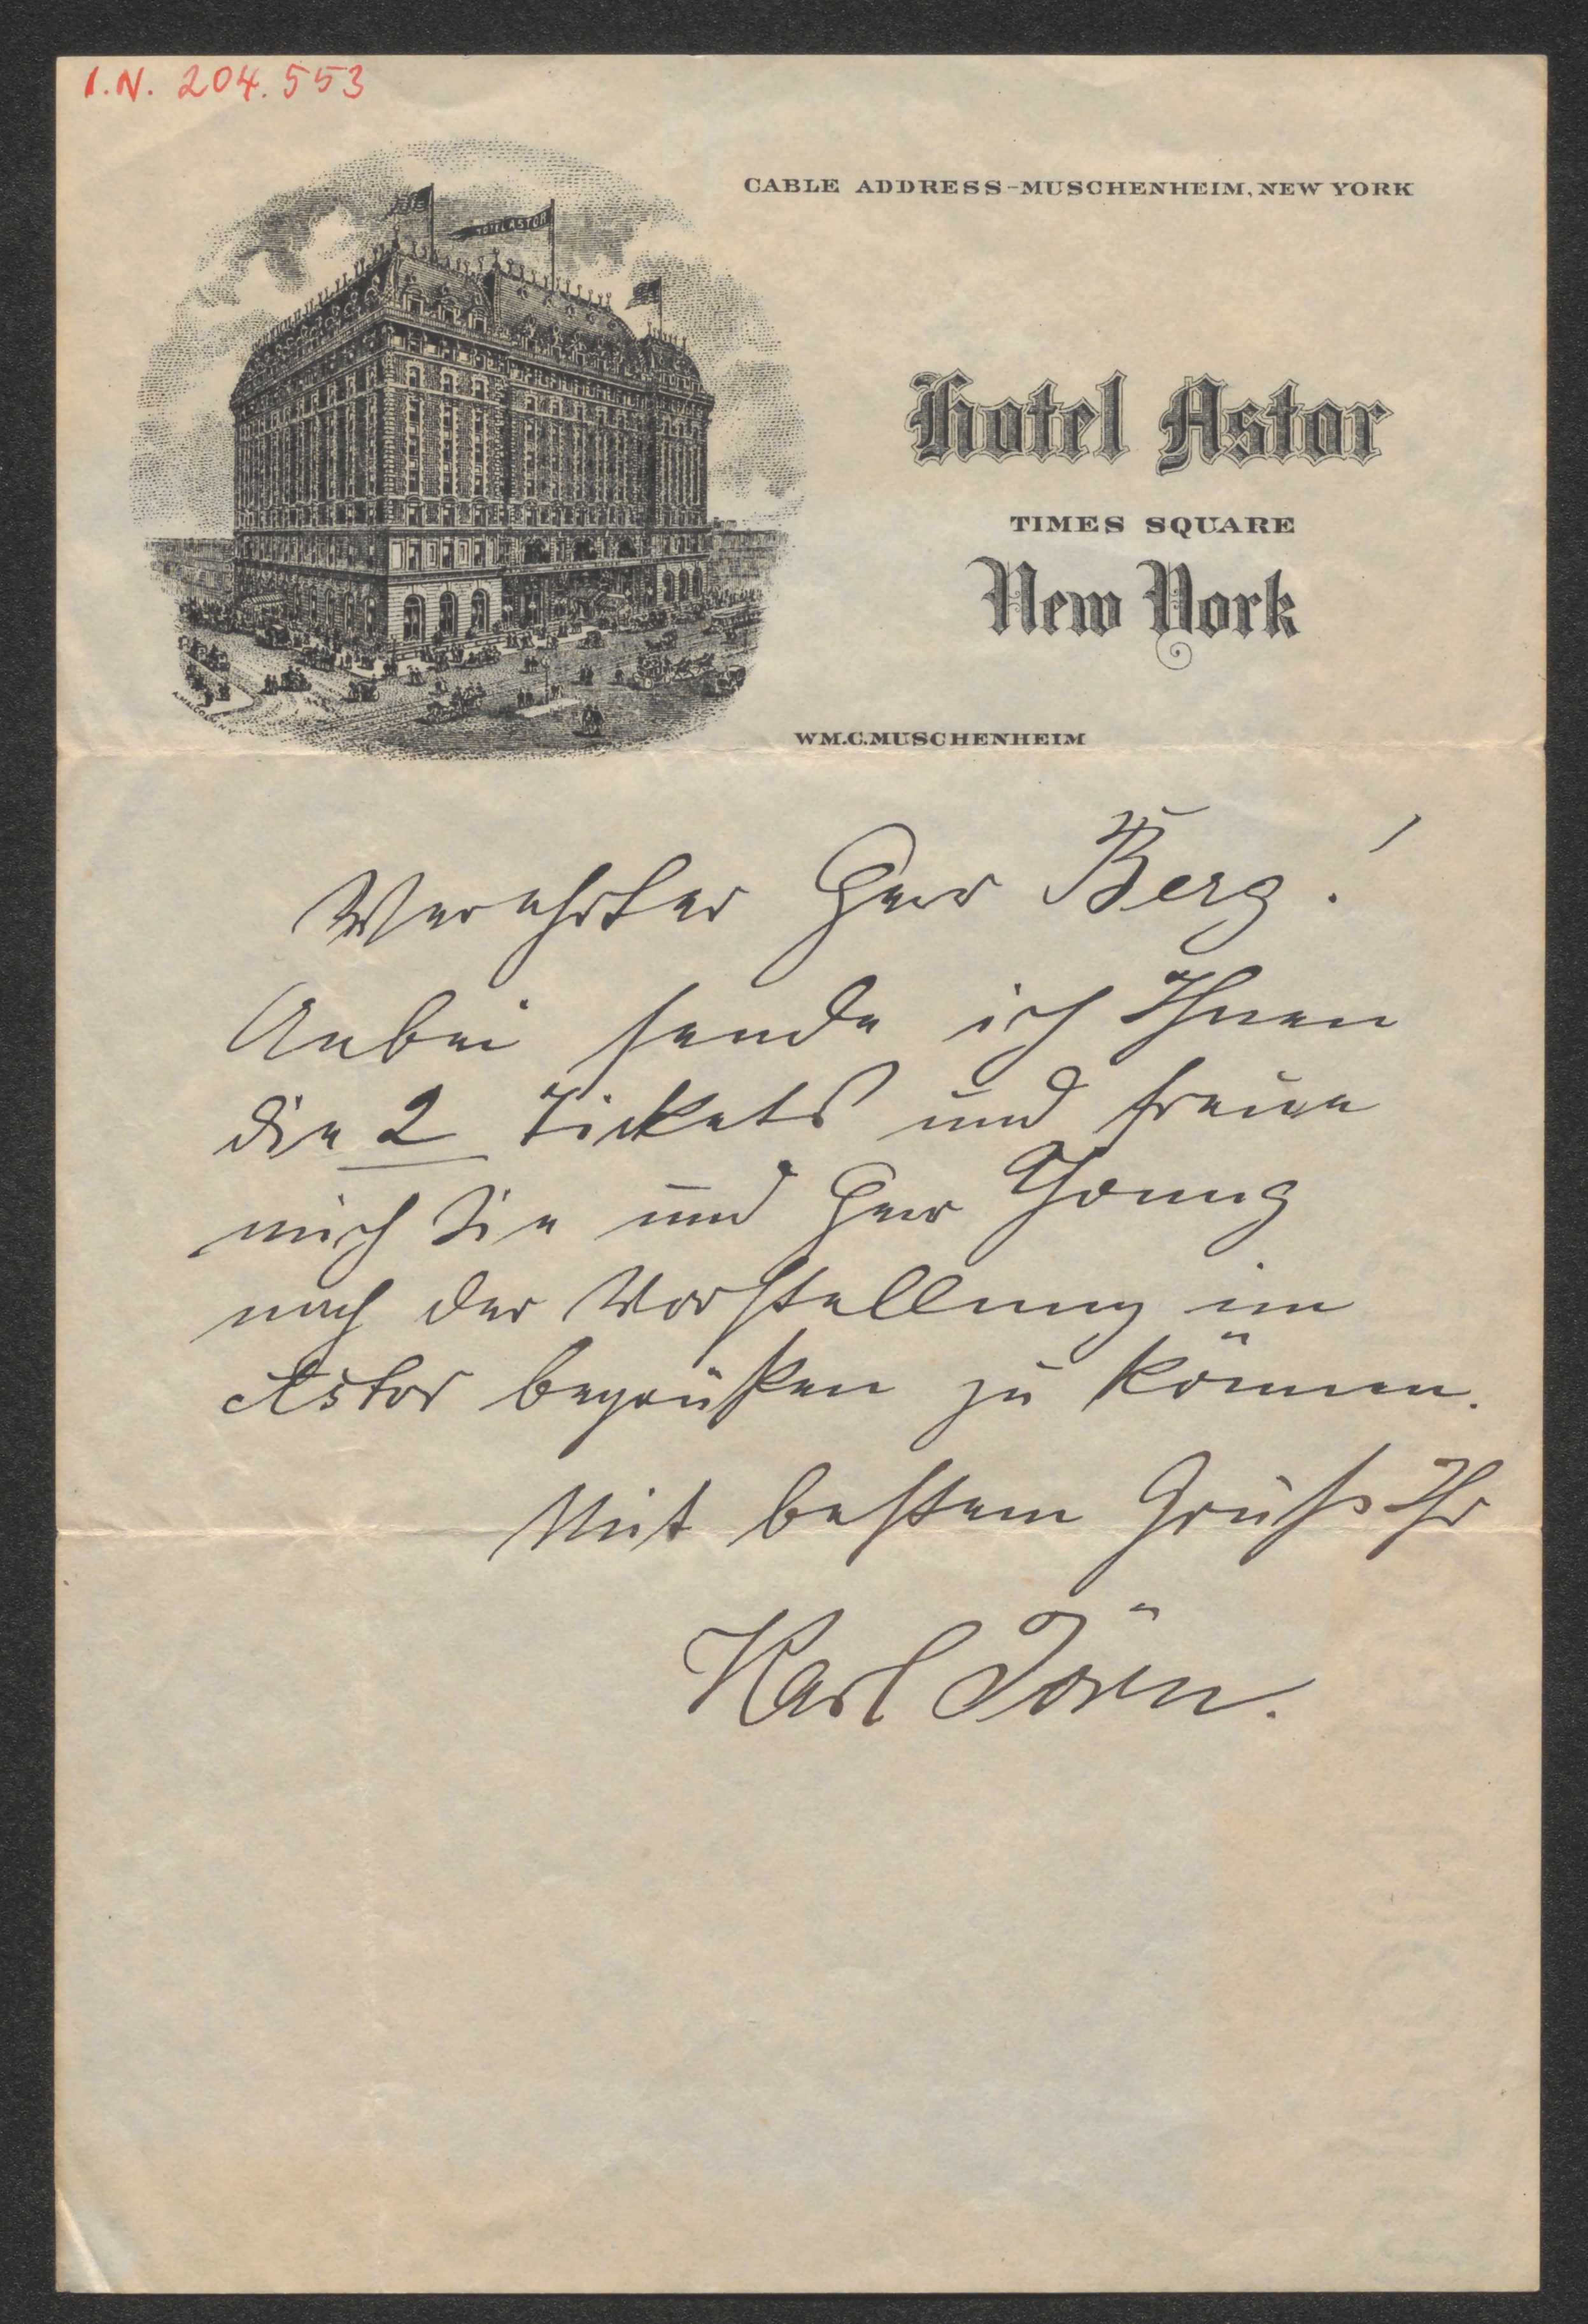 I.N. 204.553
CABLE ADDRESS-MUSCHENHEIM, NEW YORK
HOTEL ASTOR
Hotel Astor
TIMES SQUARE
New York
WM.C.MUSCHENHEIM
Verehrter Herr Berg!
Anbei sende ich Ihnen
die 2 Tickets und freue
mich Sie und Herr Young
nach der Vorstellung im
Astor begrüßen zu können.
Mit bestem Gruß Ihr
Karl Jörn.